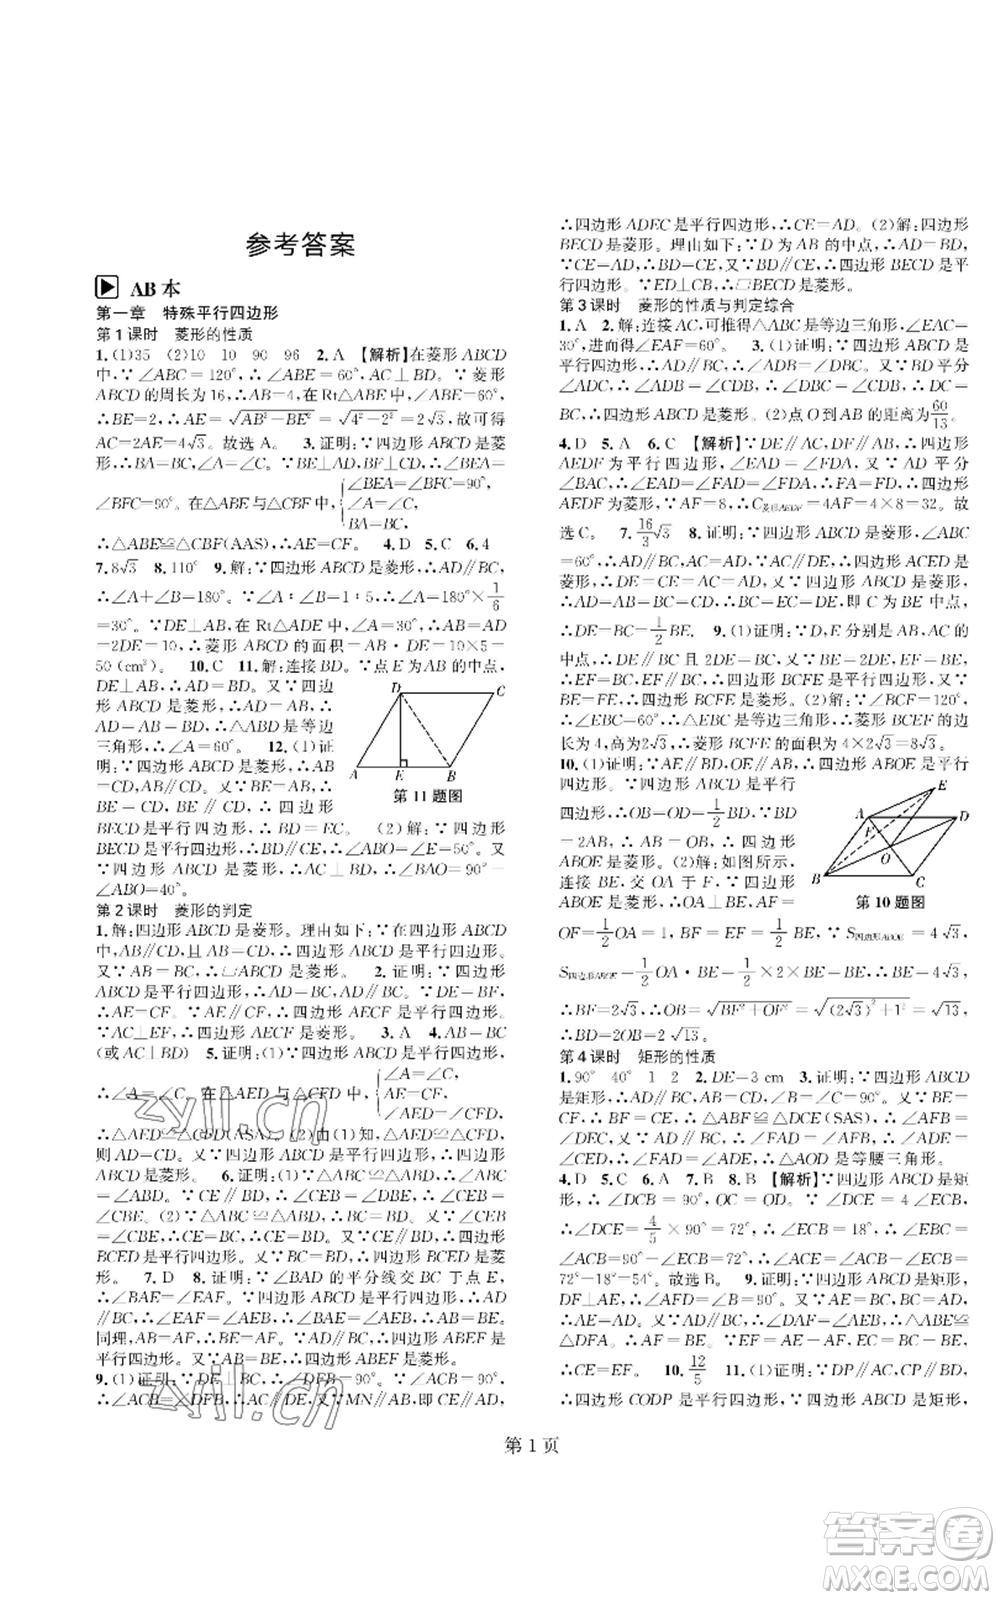 参考答案
AB本
第一章 特殊平行四边形
第1课时 菱形的性质
1.(1)35 (2)10 10 90 96 2.A 【解析】在菱形ABCD
中,∵∠ABC=120°,∴∠ABE=60°,AC⊥BD.∵菱形
ABCD的周长为16,∴AB=4,在Rt△ABE中,∠ABE=60°,
∴BE=2,∴AE=√(AB²−BE²)=√(4²−2²)=2√3,故可得
AC=2AE=4√3.故选A. 3.证明:∵四边形ABCD是菱
形,∴BA=BC,∠A=∠C.∵BE⊥AD,BF⊥CD,∴∠BEA=
∠BFC=90°.在△ABE与△CBF中,{∠BEA=∠BFC, ∠A=∠C, BA=BC,
∴△ABE≌△CBF(AAS),∴AE=CF. 4.D 5.C 6.4
7.8√3 8.110° 9.解:∵四边形ABCD是菱形,∴AD∥BC,
∴∠A+∠B=180°.∵∠A∶∠B=1∶5,∴∠A=180°×1/6
=30°.∵DE⊥AB,在Rt△ADE中,∠A=30°,∴AB=AD
=2DE=10,∴菱形ABCD的面积=AB·DE=10×5=
50(cm²). 10.C 11.解:连接BD.∵点E为AB的中点,
DE⊥AB,∴AD=BD.又∵四边
形ABCD是菱形,∴AD=
AB,∴△ABD是等边
三角形,∴∠A=60°. 12.(1)证
明:∵四边形ABCD是菱形,∴AB
=CD,AB∥CD.又∵BE=AB,∴
BE=CD,BE∥CD,∴四边形
BECD是平行四边形,∴BD=EC. (2)解:∵四边形
BECD是平行四边形,∴BD∥CE,∴∠ABO=∠E=50°.又
∵四边形ABCD是菱形,∴AC⊥BD,∴∠BAO=90°−
∠ABO=40°.
D C A E B
第11题图
第2课时 菱形的判定
1.解:四边形ABCD是菱形.理由如下:∵在四边形ABCD
中,AB∥CD,且AB=CD,∴四边形ABCD是平行四边形.
又∵AB=BC,∴▱ABCD是菱形. 2.证明:∵四边形
ABCD是平行四边形,∴AD∥BC,AD=BC.∵DE=BF,
∴AE=CF.∵AE∥CF,∴四边形AECF是平行四边形.
∵AC⊥EF,∴四边形AECF是菱形. 3.A 4.AB=BC
(或AC⊥BD) 5.证明:(1)∵四边形ABCD是平行四边形,
∴∠A=∠C.在△AED与△CFD中,{∠A=∠C, AE=CF, ∠AED=∠CFD,
∴△AED≌△CFD(ASA). (2)由(1)知,△AED≌△CFD,
则AD=CD.又∵四边形ABCD是平行四边形,∴四边形
ABCD是菱形. 6.证明:(1)∵△ABC≌△ABD,∴∠ABC=
∠ABD.∵CE∥BD,∴∠CEB=∠DBE,∴∠CEB=
∠CBE. (2)∵△ABC≌△ABD,∴BC=BD.∵∠CEB=
∠CBE,∴CE=CB,∴CE=BD.又∵CE∥BD,∴四边形
BCED是平行四边形.又∵BC=BD,∴四边形BCED是菱
形. 7.D 8.证明:∵∠BAD的平分线交BC于点E,
∴∠BAE=∠EAF.∵四边形ABCD是平行四边形,∴AD
∥BC,∴∠EAF=∠AEB,∴∠BAE=∠AEB,∴AB=BE.
同理,AB=AF,∴AF=BE.∵AF∥BE,∴四边形ABEF是
平行四边形.又∵AB=BE,∴四边形ABEF是菱形.
9.(1)证明:∵DE⊥BC,∴∠DFB=90°.∵∠ACB=90°,
∴∠ACB=∠DFB,∴AC∥DE.又∵MN∥AB,即CE∥AD,
∴四边形ADEC是平行四边形,∴CE=AD. (2)解:四边形
BECD是菱形.理由如下:∵D为AB的中点,∴AD=BD,
∵CE=AD,∴BD=CE.又∵BD∥CE,∴四边形BECD是平
行四边形.∵ED⊥CB,∴▱BECD是菱形.
第3课时 菱形的性质与判定综合
1.A 2.解:连接AC,可推得△ABC是等边三角形,∠EAC=
30°,进而得∠EAF=60°. 3.(1)证明:∵四边形ABCD是
平行四边形,∴AD∥BC,∴∠ADB=∠DBC.又∵∠ADB
=∠CDB,∴∠DBC=∠CDB,∴DC=
BC,∴四边形ABCD是菱形. (2)点O到AB的距离为60/13.
4.D 5.A 6.C 【解析】∵DE∥AC,DF∥AB,∴四边形
AEDF为平行四边形,∴∠EAD=∠FDA.又∵AD平分
∠BAC,∴∠EAD=∠FAD=∠FDA,∴FA=FD,∴四边形
AEDF是菱形,∵AF=8,∴C菱形AEDF=4AF=4×8=32.故
选C. 7.16/3√3 8.证明:∵四边形ABCD是菱形,∠ABC
=60°,∴BC=AC=AD.∵AC∥DE,∴四边形ACED是
菱形,∴CE=DE=AC=AD,∴BC=EC=DE,即C为BE中点,
∴DE=BC=1/2BE. 9.(1)证明:∵D,E分别是AB,AC的
中点,∴DE∥BC且2DE=BC.又∵BE=2DE,EF=BE,
∴EF=BC,EF∥BC,∴四边形BCFE是平行四边形.又∵
BE=FE,∴四边形BCFE是菱形. (2)解:∵∠BCF=120°,
∴∠EBC=60°,∴△EBC是等边三角形,∴菱形BCEF的边
长为4,高为2√3,∴菱形BCFE的面积为4×2√3=8√3.
10.(1)证明:∵四边形ABCD是菱形,四边形ABOE是平行
四边形,∴OB=OD=1/2BD.∵BD
=2AB,∴AB=OB,∴四边形
ABOE是菱形. (2)解:如图所示,
连接BE,交OA于F,∵四边形
ABOE是菱形,∴OA⊥BE,AF=
OF=1/2OA=1,BF=EF=1/2BE,∵S四边形ABOE=4√3,
S四边形ABOE=1/2OA·BE=1/2×2×BE=4√3,∴BE=4√3,
∴BF=2√3,∴OB=√(BF²+OF²)=√((2√3)²+1²)=√13,
∴BD=2OB=2√13.
E A F D O B C
第10题图
第4课时 矩形的性质
1.90° 40° 1 2 2.DE=3cm 3.证明:∵四边形ABCD
是矩形,∴AB=CD,∠B=∠C=90°.∵BE=CF,
∴BF=CE,∴△ABF≌△DCE(SAS),∴∠AFB=
∠DEC,∵AD∥BC,∴△AOD是等腰三角形.
4.D 5.C 6.A 7.B 8.B 【解析】∵四边形ABCD是矩
形,∴∠DCB=90°,OC=OD.∵∠DCE=4∠ECB,
∴∠DCE=4/5×90°=72°,∴∠ECB=18°,∴∠EBC=
∠ACB=90°−∠ECB=72°,∴∠ACE=∠ACB−∠ECB=
72°−18°=54°.故选B. 9.证明:∵四边形ABCD是矩形,
DF⊥AE,∴∠AFD=∠B=90°.又∵AD∥BC,
∴∠AEB=∠DAE.又∵AD=AE,∴△ABE≌
△DFA.∴AF=BE.∵AE=AD=BC,
∴CE=EF. 10.12/5 11.(1)证明:∵DP∥AC,CP∥BD,
∴四边形CODP是平行四边形,∵四边形ABCD是矩形,
第1页
zyjl.cn
zyjl.cn
答案卷
MXQE.COM